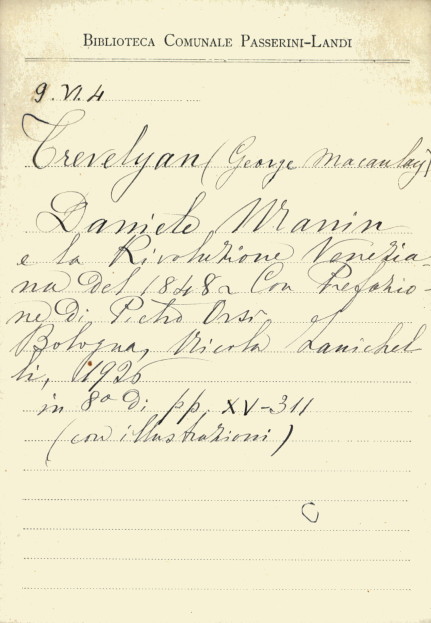 BIBLIOTECA COMUNALE PASSERINI-LANDI
9.VI.4
Trevelyan (George Macaulay)
Daniele Manin
e la Rivoluzione Venezia-
na del 1848. Con Prefazio-
ne di Pietro Orsi
Bologna, Nicola Zanichel-
li, 1926
in 8º di pp. XV-311
(con illustrazioni)